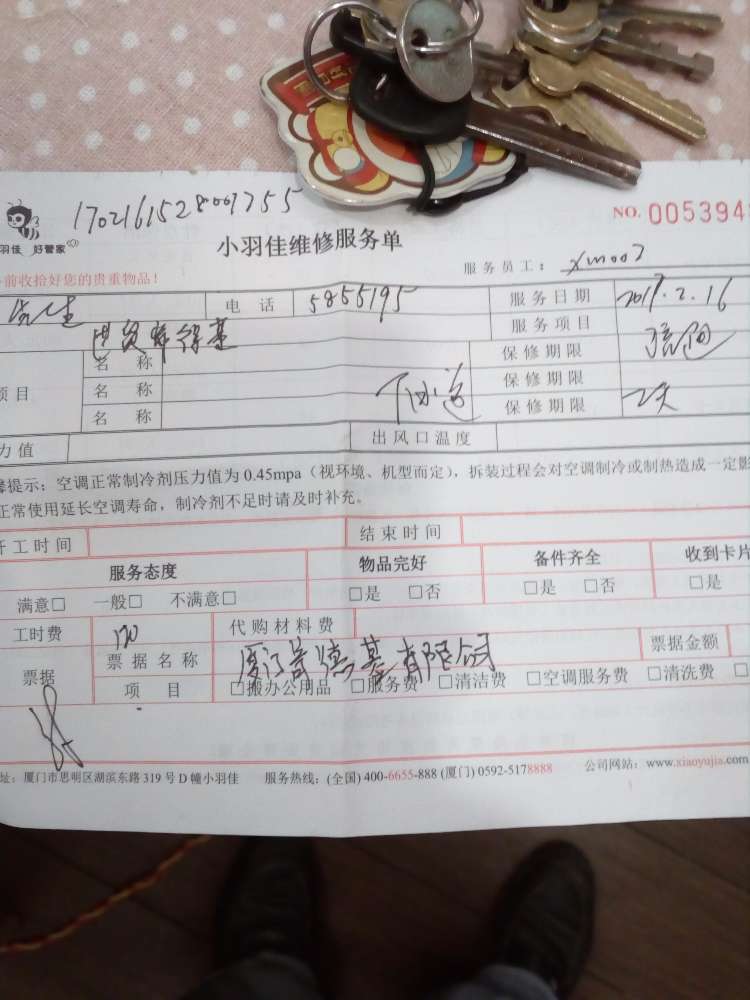 1702161528001755
NO. 005394
羽佳 好管家
小羽佳维修服务单
前收拾好您的贵重物品！
服务员工： xm007
先生 电话 5855195 服务日期 2017.2.16
服务项目
名称 保修期限
项目 名称 下水道 保修期限
名称 保修期限
力值 出风口温度
馨提示：空调正常制冷剂压力值为 0.45mpa（视环境、机型而定），拆装过程会对空调制冷或制热造成一定影
正常使用延长空调寿命，制冷剂不足时请及时补充。
开工时间 结束时间
服务态度 物品完好 备件齐全 收到卡片
满意□ 一般□ 不满意□ □是 □否 □是 □否 □是
工时费 170 代购材料费
票据 票据名称 厦门肯德基有限公司 票据金额
项目 □搬办公用品 □服务费 □清洁费 □空调服务费 □清洗费 □
址：厦门市思明区湖滨东路 319 号 D 幢小羽佳 服务热线：(全国) 400-6655-888 (厦门) 0592-5178888 公司网站：www.xiaoyujia.com